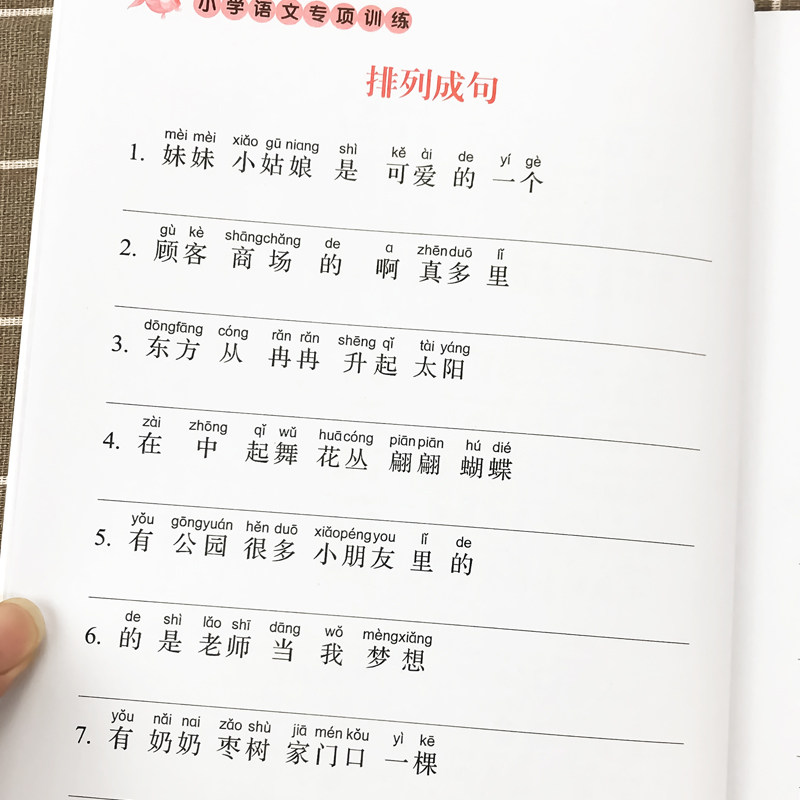 小学语文专项训练
排列成句
mèi mèi xiǎo gū niang shì kě ài de yí gè
1. 妹妹 小姑娘 是 可爱 的 一个
gù kè shāngchǎng de a zhēnduō lǐ
2. 顾客 商场 的 啊 真多 里
dōngfāng cóng rǎn rǎn shēng qǐ tài yáng
3. 东方 从 冉冉 升起 太阳
zài zhōng qǐ wǔ huācóng piānpiān hú dié
4. 在 中 起舞 花丛 翩翩 蝴蝶
yǒu gōngyuán hěn duō xiǎopéngyou lǐ de
5. 有 公园 很多 小朋友 里 的
de shì lǎo shī dāng wǒ mèngxiǎng
6. 的 是 老师 当 我 梦想
yǒu nǎi nai zǎo shù jiā mén kǒu yì kē
7. 有 奶奶 枣树 家门口 一棵